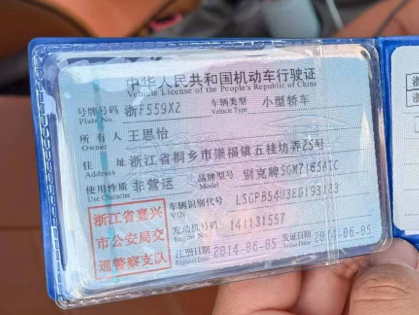 中华人民共和国机动车行驶证
Vehicle License of the People's Republic of China
号牌号码 浙F559X2 车辆类型 小型轿车
Plate No. Vehicle Type
所有人 王思怡
Owner
住址 浙江省桐乡市崇福镇五桂坊弄25号
Address
使用性质 非营运 品牌型号 别克牌SGM7165ATC
Use Character Model
车辆识别代号 LSGPB54U3ED193183
VIN
发动机号码 141131557
Engine No.
注册日期 2014-06-05 发证日期 2014-06-05
浙江省嘉兴
市公安局交
通警察支队